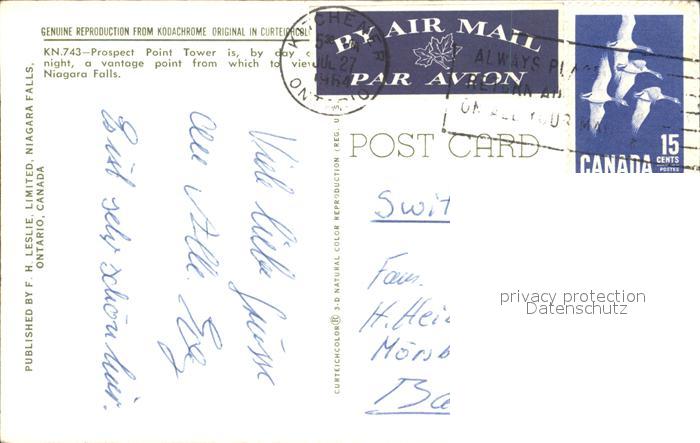 GENUINE REPRODUCTION FROM KODACHROME ORIGINAL IN CURTEICHCOL
KN.743—Prospect Point Tower is, by day
night, a vantage point from which to view
Niagara Falls.
PUBLISHED BY F. H. LESLIE, LIMITED, NIAGARA FALLS,
ONTARIO, CANADA
Viele liebe Grüsse
an Alle.
Es ist sehr schön hier.
CURTEICHCOLOR® 3-D NATURAL COLOR REPRODUCTION (REG. U
KITCHENER
JUL 27
1964
ONTARIO
BY AIR MAIL
PAR AVION
ALWAYS
RETURN
ON ALL YOUR MAIL
15
CENTS
POSTES
CANADA
POST CARD
Swit
Fam.
H. Hei
Mörsb
Ba
privacy protection
Datenschutz